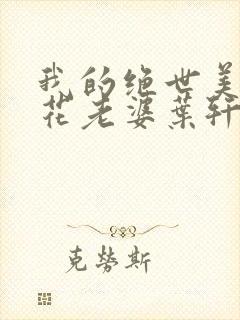 我的绝世美
花老婆叶轩
克劳斯